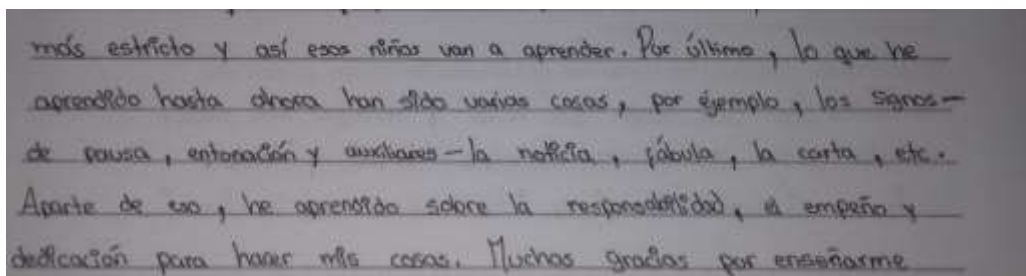 más estricto y así esos niños van a aprender. Por último, lo que he
aprendido hasta ahora han sido varias cosas, por ejemplo, los signos-
de pausa, entonación y auxiliares - la noticia, fábula, la carta, etc.
Aparte de eso, he aprendido sobre la responsabilidad, el empeño y
dedicación para hacer mis cosas. Muchas gracias por enseñarme